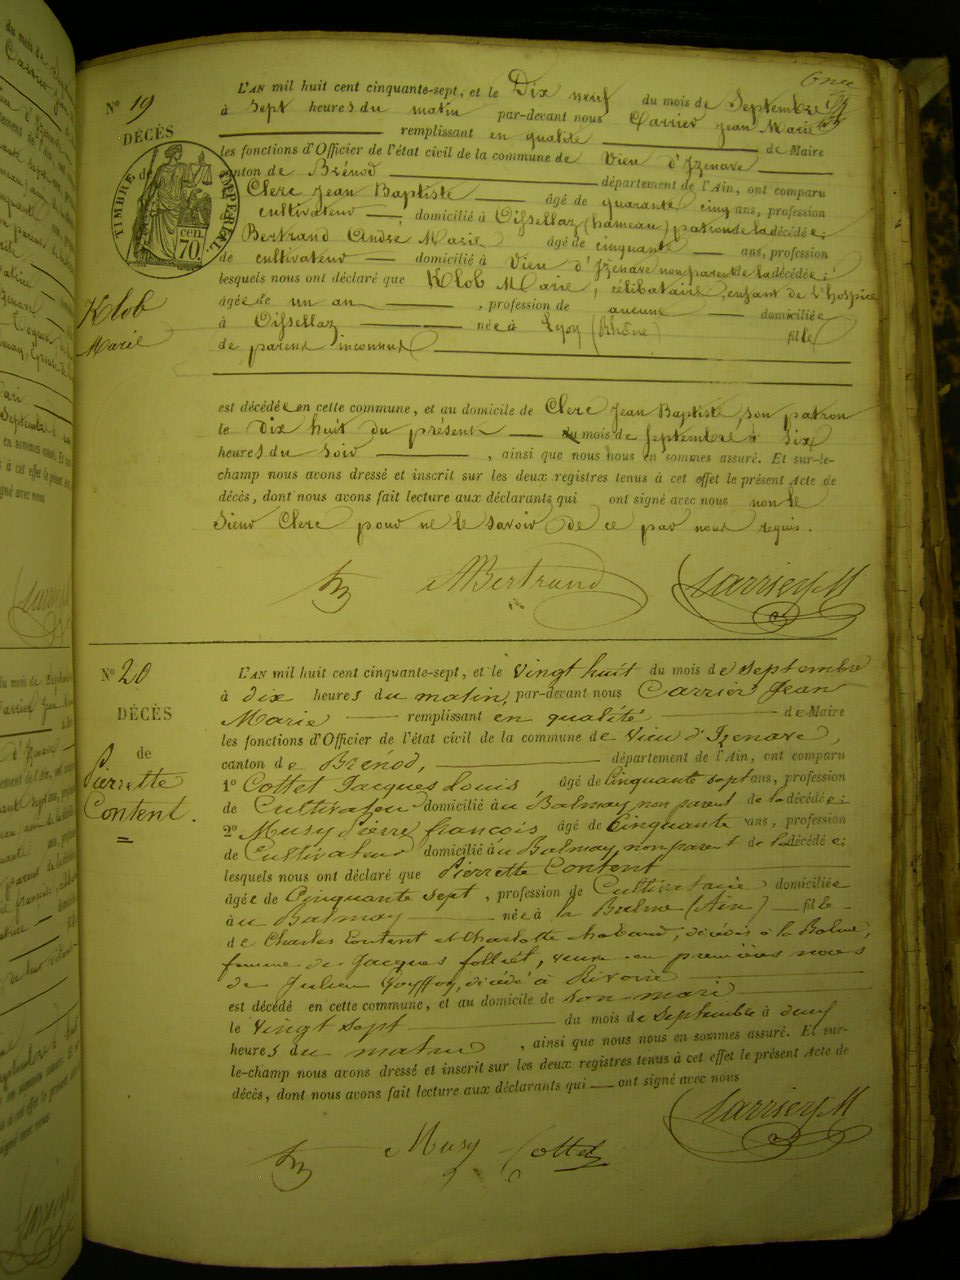 Onze
Nº 19
DÉCÈS
de
TIMBRE IMPÉRIAL
70 cen.
Klob
Marie
L'AN mil huit cent cinquante-sept, et le Dix neuf du mois de Septembre
à sept heures du matin par-devant nous Carrier Jean Marie
remplissant en qualité de Maire
les fonctions d'Officier de l'état civil de la commune de Vieu d'Izenave
canton de Brénod département de l'Ain, ont comparu
Clerc Jean Baptiste âgé de quarante cinq ans, profession
de cultivateur, domicilié à Oissellaz (hameau) patron de la décédée;
Bertrand André Marie âgé de cinquante ans, profession
de cultivateur domicilié à Vieu d'Izenave non parent de la décédée;
lesquels nous ont déclaré que Klob Marie, célibataire, enfant de l'hospice
âgée de un an, profession de aucune domiciliée
à Oissellaz née à Lyon (Rhône) fille
de parents inconnus
est décédée en cette commune, et au domicile de Clerc Jean Baptiste, son patron
le Dix huit du présent du mois de septembre à six
heures du soir, ainsi que nous nous en sommes assuré. Et sur-le-
champ nous avons dressé et inscrit sur les deux registres tenus à cet effet le présent Acte de
décès, dont nous avons fait lecture aux déclarants qui ont signé avec nous non le
sieur Clerc pour ne le savoir de ce par nous requis.
ABertrand Carrier JM
Nº 20
DÉCÈS
de
Pierrette
Content.
L'AN mil huit cent cinquante-sept, et le vingt huit du mois de septembre
à dix heures du matin, par-devant nous Carrier Jean
Marie remplissant en qualité de Maire
les fonctions d'Officier de l'état civil de la commune de Vieu d'Izenave,
canton de Brenod, département de l'Ain, ont comparu
1º Cottet Jacques Louis, âgé de Cinquante sept ans, profession
de Cultivateur domicilié au Balmay, non parent de la décédée;
2º Musy Pierre françois, âgé de Cinquante ans, profession
de Cultivateur domicilié au Balmay, non parent de la décédée;
lesquels nous ont déclaré que Pierrette Content
âgée de Cinquante sept, profession de Cultivatrice domiciliée
au Balmay née à la Balme (Ain) fille
de Charles Content et Charlotte chabaud, décédés à la Balme,
femme de Jacques folliet, veuve en premières noces
de Julien Goyffon, décédé à
est décédé en cette commune, et au domicile de son mari
le vingt sept du mois de septembre à neuf
heures du matin, ainsi que nous nous en sommes assuré. Et sur-
le-champ nous avons dressé et inscrit sur les deux registres tenus à cet effet le présent Acte de
décès, dont nous avons fait lecture aux déclarants qui ont signé avec nous
Musy Cottet Carrier JM